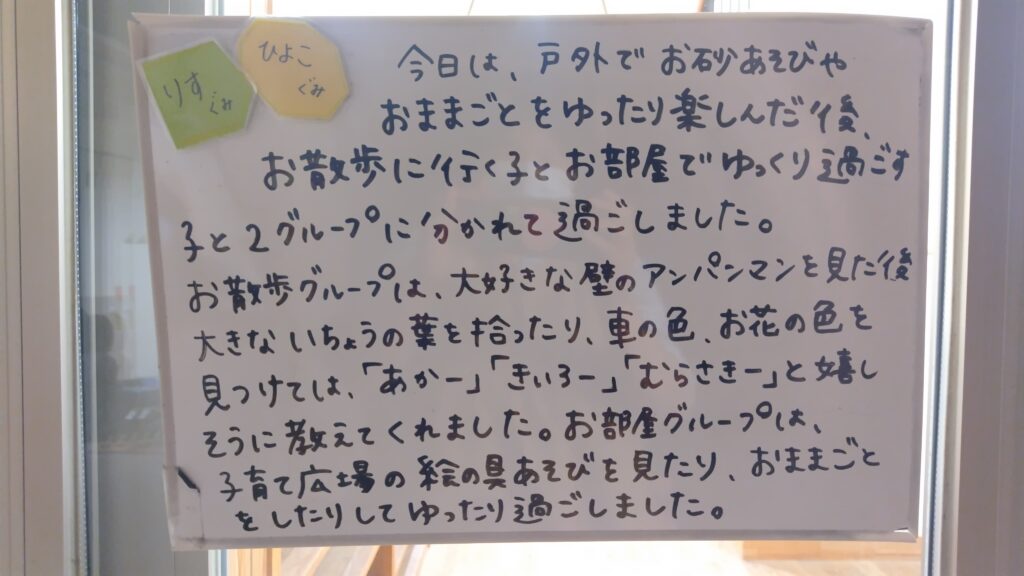 りすぐみ
ひよこ
ぐみ
今日は、戸外でお砂あそびや
おままごとをゆったり楽しんだ後、
お散歩に行く子とお部屋でゆっくり過ごす
子と2グループに分かれて過ごしました。
お散歩グループは、大好きな壁のアンパンマンを見た後
大きないちょうの葉を拾ったり、車の色、お花の色を
見つけては、「あかー」「きいろー」「むらさきー」と嬉し
そうに教えてくれました。お部屋グループは、
子育て広場の絵の具あそびを見たり、おままごと
をしたりしてゆったり過ごしました。